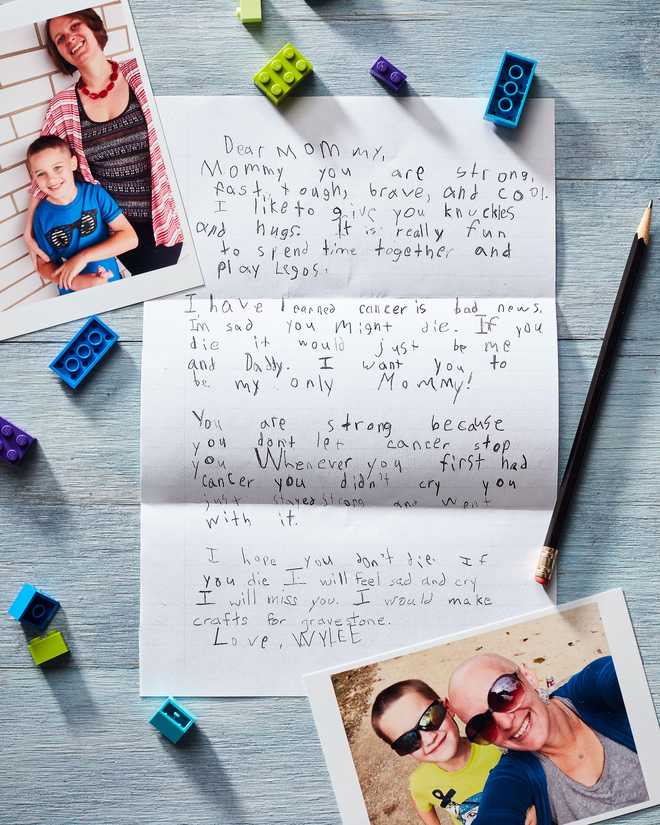 Dear MOMmy,
Mommy you are strong,
fast, tough, brave, and cool.
I like to give you knuckles
and hugs. It is really fun
to spend time together and
play Legos.
I have learned cancer is bad news.
Im sad you might die. If you
die it would just be me
and Daddy. I want you to
be my only Mommy!
You are strong because
you dont let cancer stop
you Whenever you first had
cancer you didn't cry you
just stayed strong and went
with it.
I hope you don't die. If
you die I will feel sad and cry
I will miss you. I would make
crafts for gravestone.
Love, WYLEE